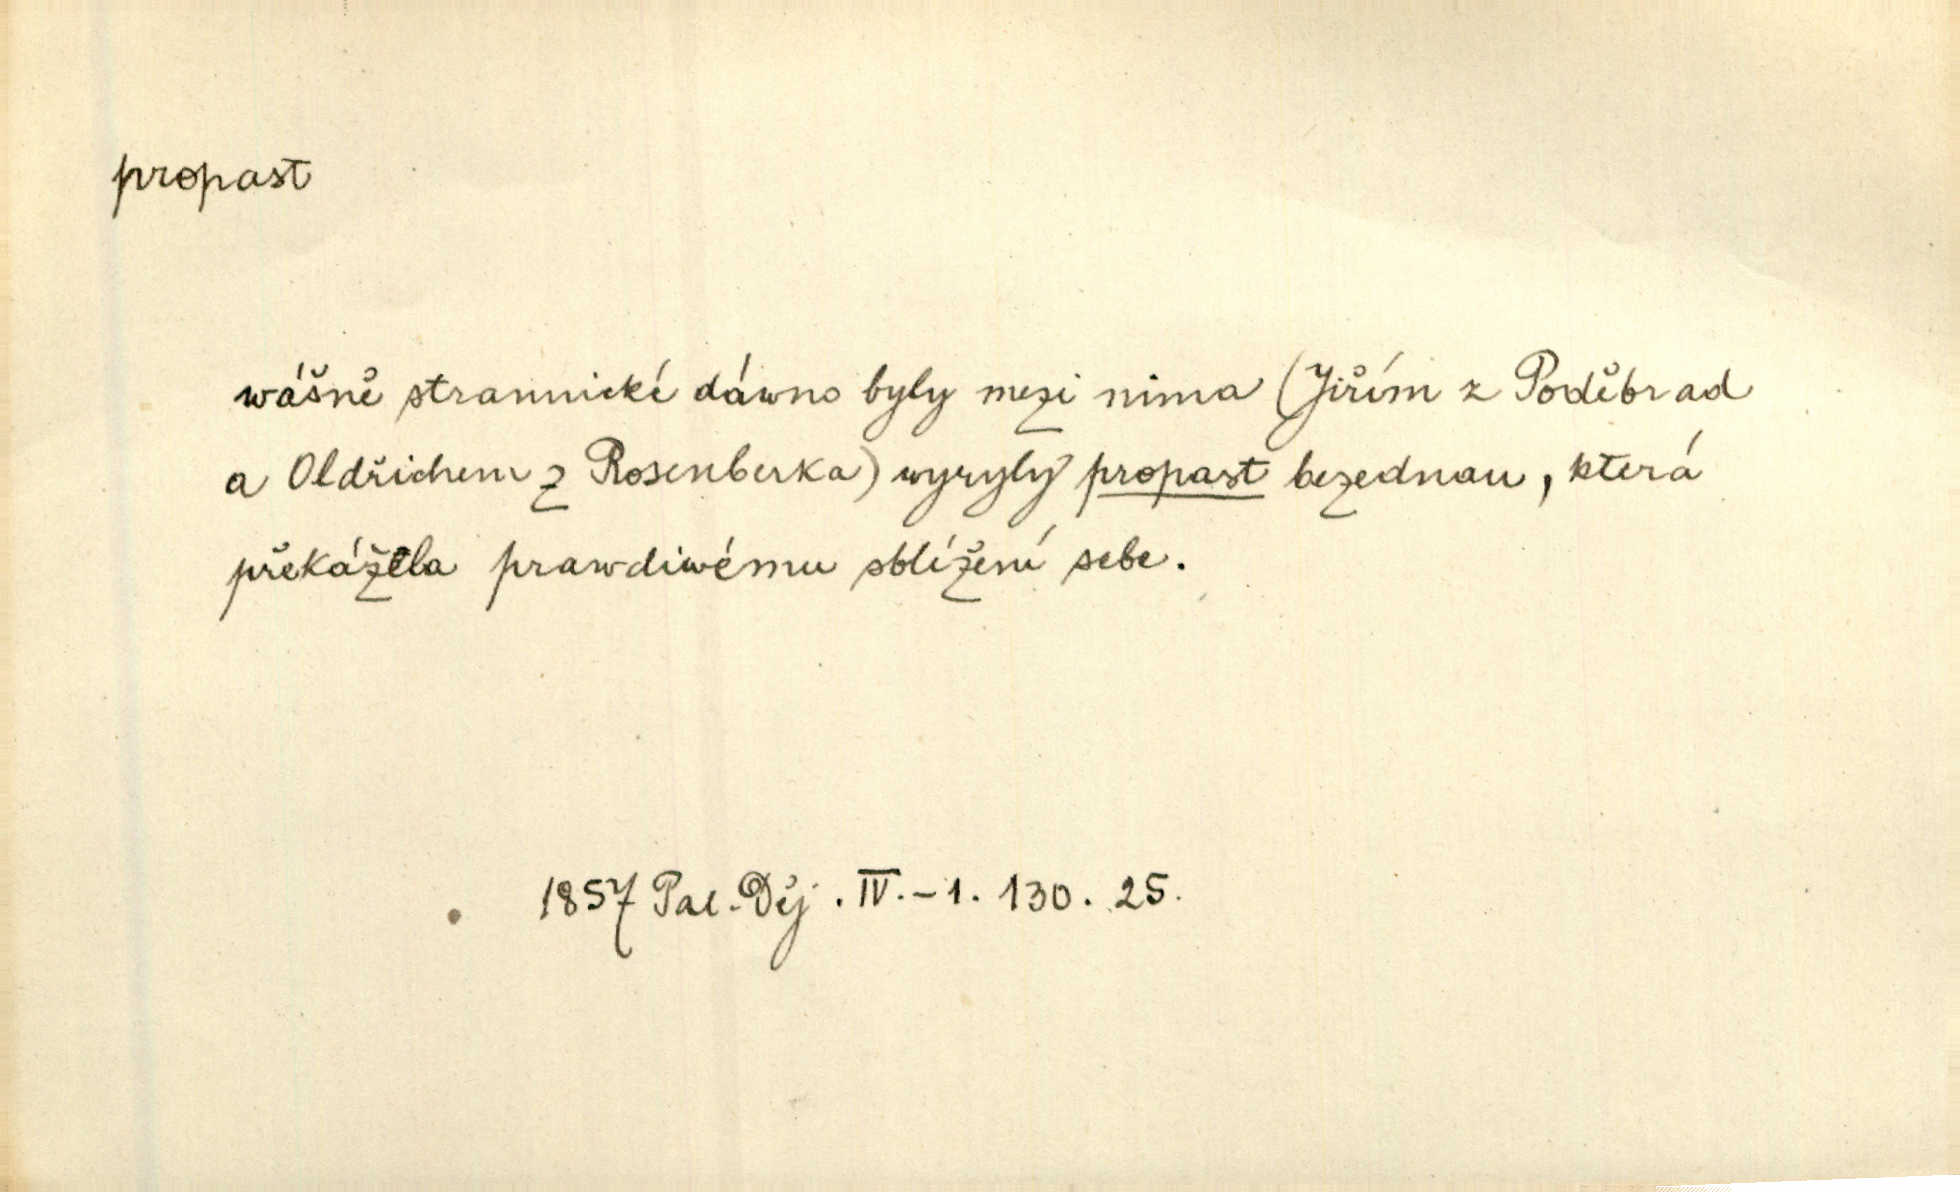 propast
wášně strannické dáwno byly mezi nima (Jiřím z Poděbrad
a Oldřichem z Rosenberka) wyryly propast bezednau, která
překážela prawdiwému sblížení sebe.
1857 Pal. Děj. IV.-1. 130. 25.